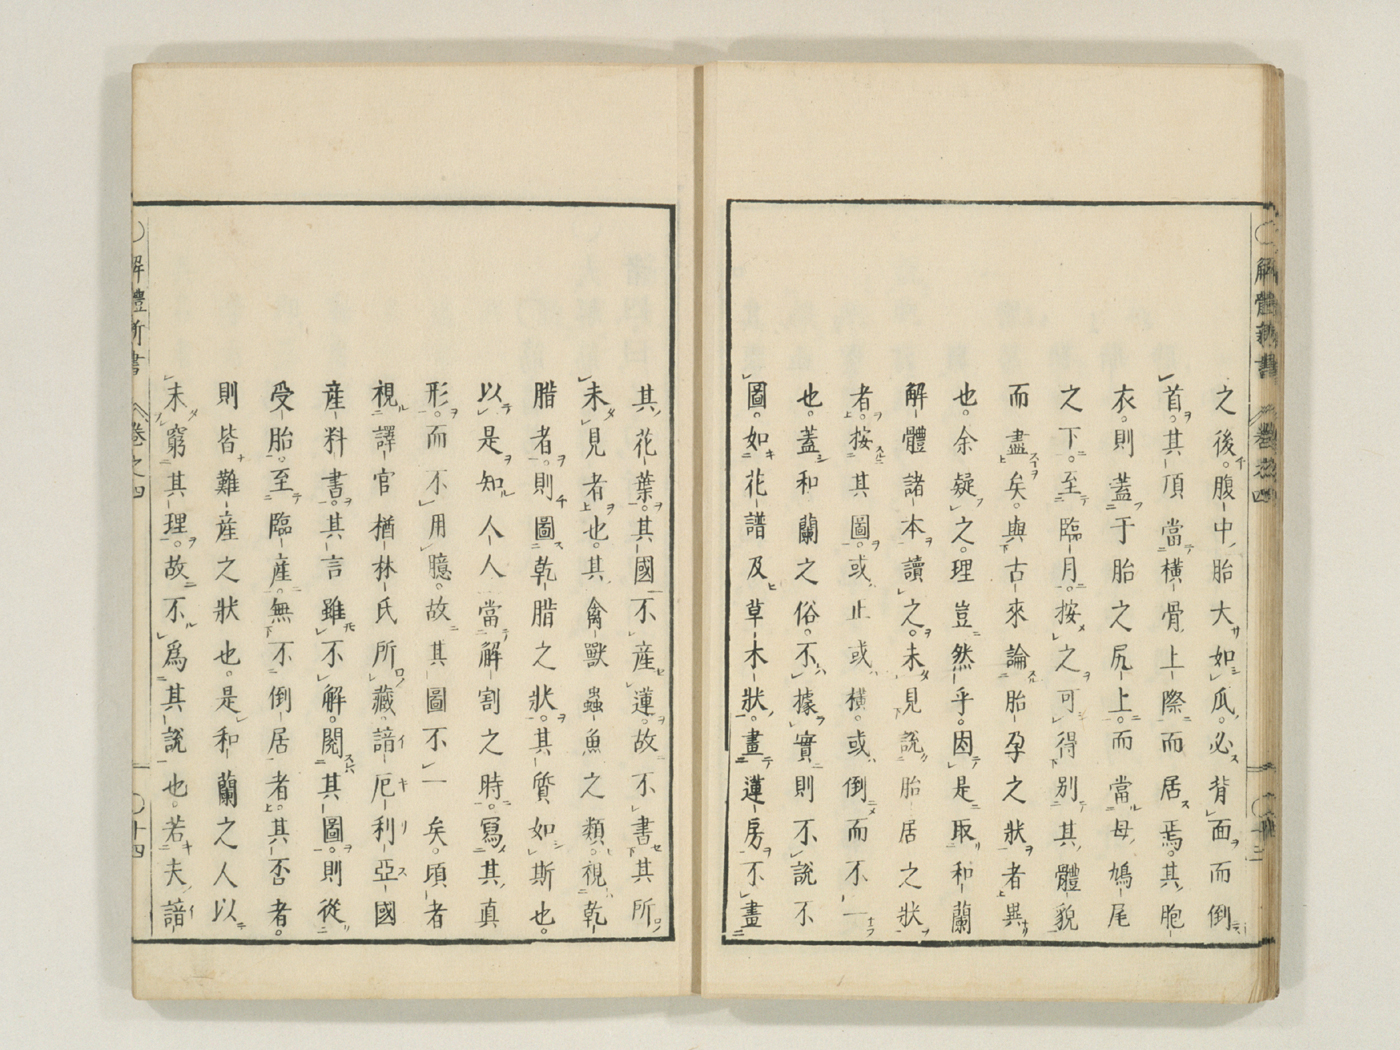 之後。腹中胎大如瓜。必背面而倒
首。其頂當橫骨上際而居焉。其胞
衣。則蓋于胎之尻上。而當母鳩尾
之下。至臨月。按之可得別其體貌
而盡矣。與古來論胎孕之狀者異
也。余疑之。理豈然乎。因是取和蘭
解體諸本讀之。未見說胎居之狀
者。按其圖。或止或橫。或倒而不一
也。蓋和蘭之俗。不據實則不說不
圖。如花譜及草木狀。畫蓮房不畫
其花葉。其國不產蓮。故不書其所
未見者也。其禽獸蟲魚之類。視乾
腊者。則圖乾腊之狀。其質如斯也。
以是知人人當解割之時。寫其真
形。而不用臆。故其圖不一矣。頃者
視譯官楢林氏所藏諳厄利亞國
產科書。其言雖不解。閱其圖。則從
受胎。至臨產。無不倒居者。其否者。
則皆難產之狀也。是和蘭之人以
未窮其理。故不爲其說也。若夫諳
解體新書 卷之四 十四